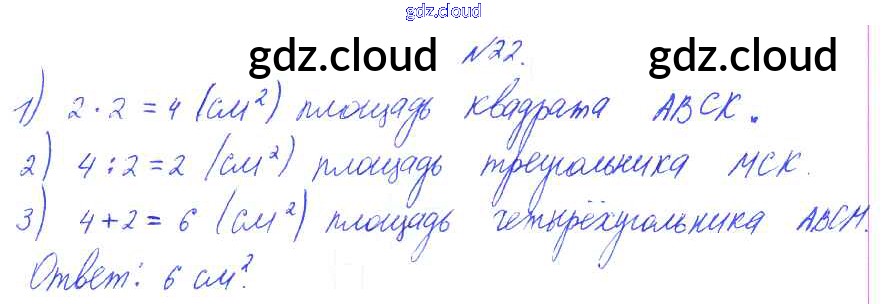 gdz.cloud
gdz.cloud №22. gdz.cloud
1) 2 · 2 = 4 (см²) площадь квадрата АВСК.
2) 4 : 2 = 2 (см²) площадь треугольника МСК.
3) 4 + 2 = 6 (см²) площадь четырёхугольника АВСМ.
Ответ: 6 см².